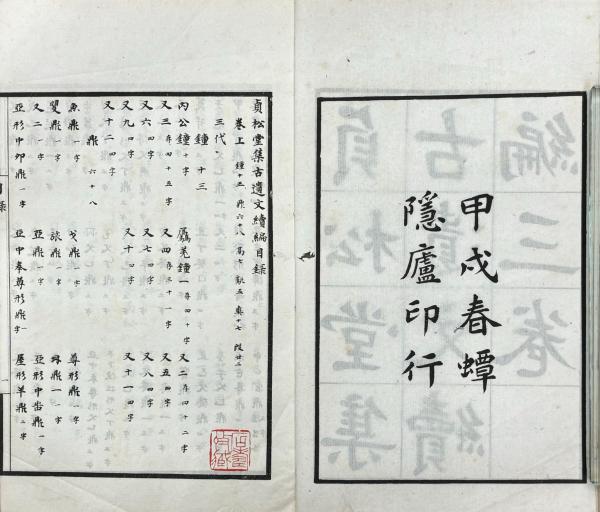 甲戌春蟫
隱廬印行
貞松堂集古遺文續編目錄
卷上 鐘十三 鼎六十八 鬲七 甗五 彝十七 𣪘廿二
三代
鐘 十三
內公鐘 十字 鷹羌鐘一 存四十字 又二 存四十二字
又三 存四十五字 又四 存六十一字 又五 四字
又六 四字 又七 四字 又八 四字
又九 四字 又十 四字 又十一 四字
又十二 四字
鼎 六十八
魚鼎 一字 戈鼎 一字 尊形鼎 一字
鼎一 一字 旅鼎 一字 鼎一 一字
又二 一字 亞鼎 一字 亞形中鼎 一字
亞形中卯鼎 一字 亞中奉尊形鼎 一字 屋形羊鼎 二字
編三卷續
古遺文
貞松堂集